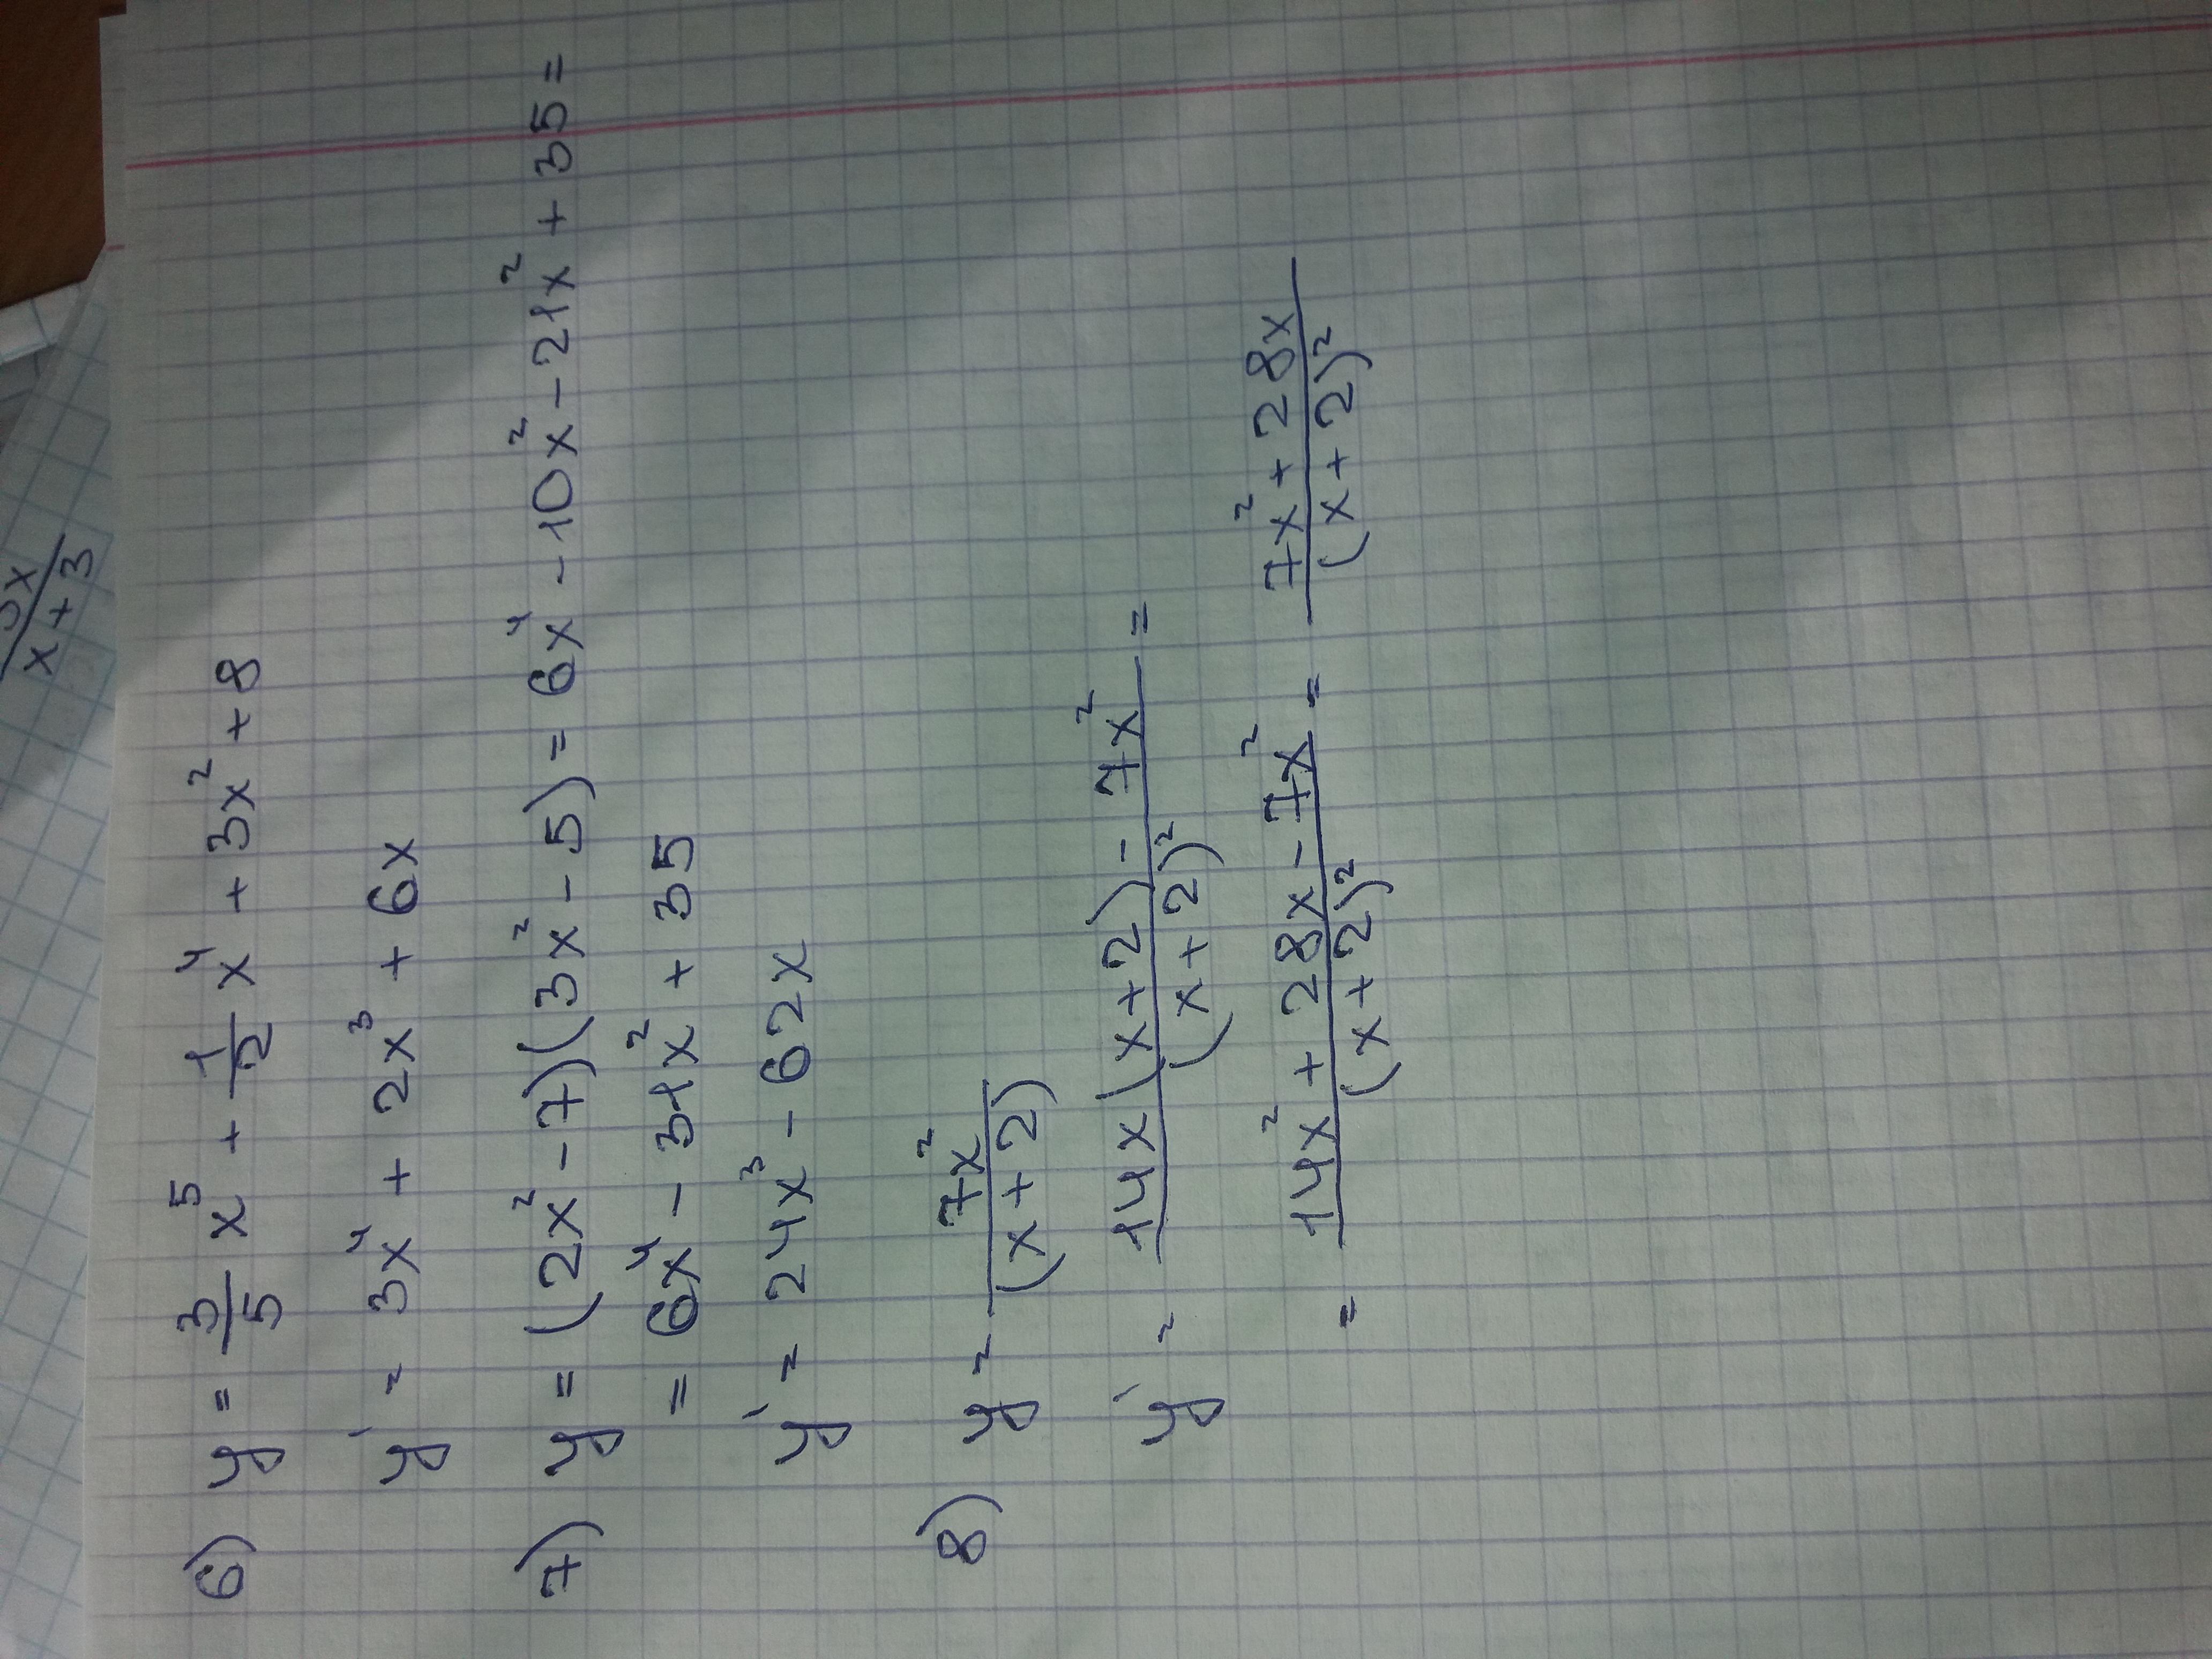 6) y = 3/5 x⁵ + 1/2 x⁴ + 3x² + 8
y' = 3x⁴ + 2x³ + 6x
7) y = (2x² - 7)(3x² - 5) = 6x⁴ - 10x² - 21x² + 35 =
= 6x⁴ - 31x² + 35
y' = 24x³ - 62x
8) y = 7x²/(x + 2)
y' = (14x(x+2) - 7x²)/(x+2)² =
= (14x² + 28x - 7x²)/(x+2)² = (7x² + 28x)/(x+2)²
x + 3